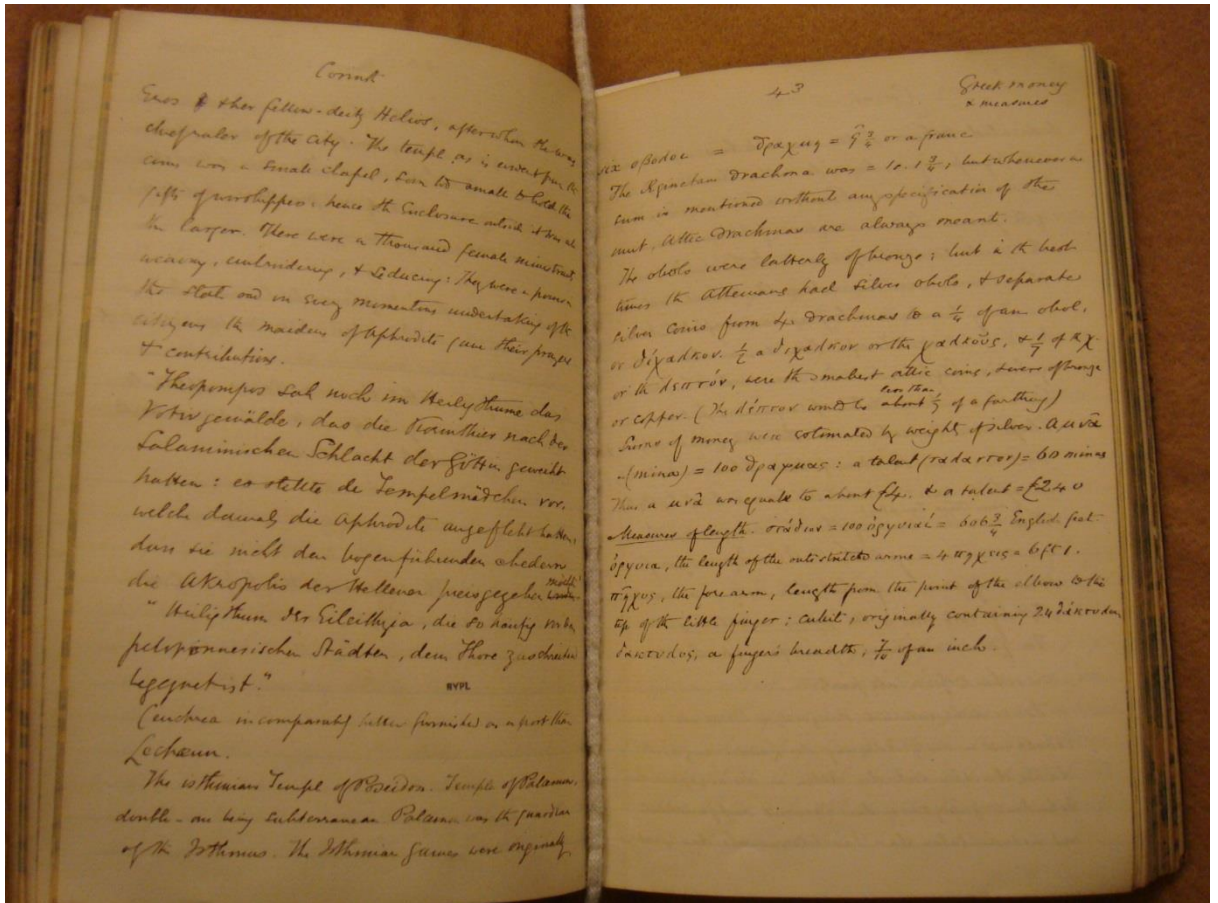 Corinth
Eros & her fellow-deity Helios, after whom she was
chief ruler of the city. The temple, as is evident from the
coins was a small chapel, even too small to hold the
gifts of worshippers: hence the Enclosure outside it was all
the larger. There were a thousand female ministrants
weaving, embroidering, & seducing: They were a power in
the State and in every momentous undertaking of the
citizens the maidens of Aphrodite gave their prayers
& contributions.
"Theopompos sah noch im Heiligthume das
Votivgemälde, das die Korinthier nach der
Salaminischen Schlacht der Göttin geweiht
hatten: es stellte die Tempelmädchen vor,
welche damals die Aphrodite angefleht hatten,
dass sie nicht den bogenführenden Medern
die Akropolis der Hellenen preisgegeben möchte
"Heiligthum der Eileithyia, die so häufig in den
peloponnesischen Städten, dem Thore zunächst
begegnet ist."
NYPL
Cenchrea incomparably better furnished as a port than
Lechaeum.
The isthmian Temple of Poseidon. Temple of Palaemon,
double - one being subterranean Palaemon was the guardian
of the Isthmus. The Isthmian games were originally
43
Greek money
& measures
six οβολοι = δραχμη = 9 3/4 or a franc
The Aeginetan Drachma was = 1s. 1 3/4; but whenever a
sum is mentioned without any specification of other
unit, Attic Drachmas are always meant.
The obols were latterly of bronze; but in the best
times the Athenians had silver obols, & separate
silver coins from 4 drachmas to a 1/4 of an obol,
or δίχαλκον. 1/2 a διχαλκον or the χαλκοῦς, & 1/7 of a χ.
or the λεπτόν, were the smallest attic coins, & were of bronze
or copper. (The λέπτον would be less than about 1/5 of a farthing)
Sums of money were estimated by weight of silver. A μνᾶ
(mina) = 100 δραχμας: a talent (ταλαντον) = 60 minas
Thus a μνᾶ was equal to about £4. & a talent = £240
Measures of length. στάδιον = 100 ὀργυιαί = 606 3/4 English feet.
ὀργυια, the length of the outstretched arms = 4 πηχεις = 6ft 1.
πῆχυς, the forearm, length from the point of the elbow to the
tip of the little finger: cubit, originally containing 24 δάκτυλοι
δακτυλος, a finger's breadth, 7/10 of an inch.